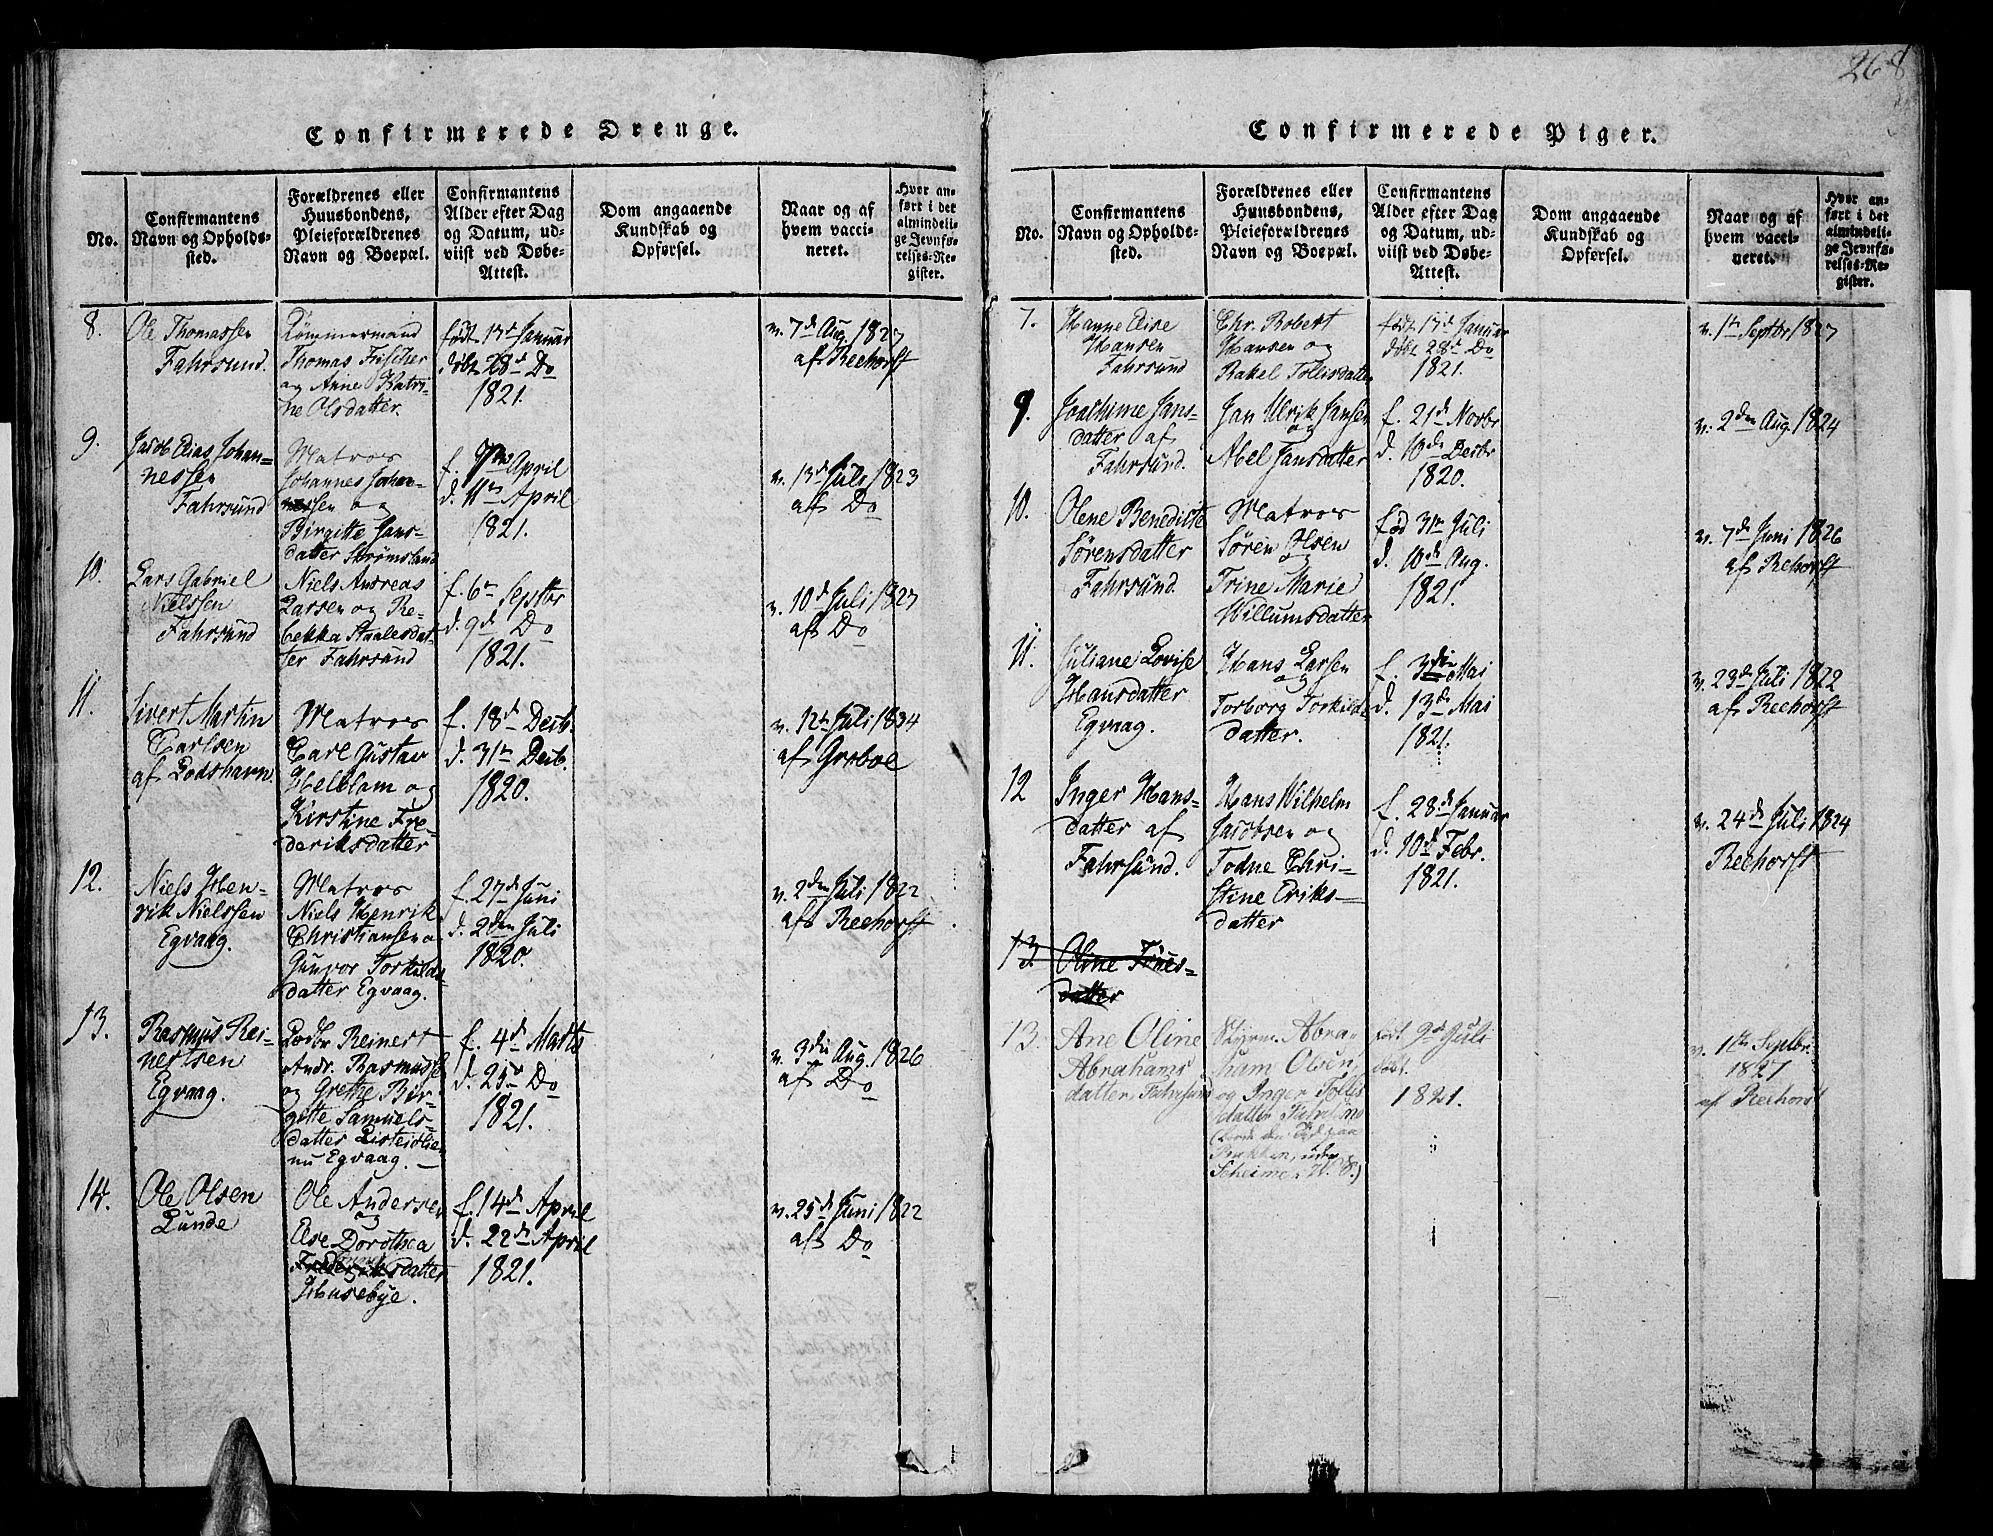 268
Confirmerede Drenge.
No.
Confirmantens
Navn og Opholds-
sted.
Forældrenes eller
Huusbondens,
Pleieforældrenes
Navn og Boepæl.
Confirmantens
Alder efter Dag
og Datum, ud-
viist ved Døbe-
Attest.
Dom angaaende
Kundskab og
Opførsel.
Naar og af
hvem vacci-
neret.
Hvor an-
ført i det
almindeli-
ge Jevnfø-
relses-Re-
gister.
8.
Ole Thomassen
Fahrsund.
Tømmermand
Thomas Fischer
og Anne Katri-
ne Olsdatter.
født 17d Januar
døbt 28d Do
1821.
v. 7d Aug. 1827
af Reehorst
9.
Jacob Elias Johan-
nessen
Fahrsund
Matros
Johannes Johan-
nessen og
Birgitte Jans-
datter Strømsland
f. 7de April
d. 11te April
1821.
v. 13d Juli 1823
af Do
10.
Lars Gabriel
Nielssen
Fahrsund
Niels Andreas
Larsen og Re-
bekka Staalesdat-
ter Fahrsund
f. 6te Septbr
d. 9d Do
1821.
v. 10d Juli 1827
af Do
11.
Sivert Martin
Carlsen
af Lodshavn
Matros
Carl Gustav
Helblam og
Kirstine Fre-
deriksdatter
f. 18d Decb.
d. 31te Decb.
1820.
v. 12te Juli 1834
af Groboe
12.
Niels Hen-
rik Nielssen
Egvaag.
Matros
Niels Henrik
Christiansen o
Gunvor Torkilds
datter Egvaag.
f. 27d Juni
d. 2den Juli
1820.
v. 2den Juli 1822
af Reehorst
13.
Rasmus Rei-
nertsen
Egvaag.
Lodbr Reinert
Andr. Rasmusse
og Grethe Bir-
gitte Samuels-
datter Listeidlien
nu Egvaag.
f. 4d Marts
d. 25d Do
1821.
v. 3die Aug. 1826
af Do
14.
Ole Olsen
Lunde
Ole Andersen
og
Else Dorothea
Frederiksdatter
Husebye.
f. 14d April
d. 22d April
1821.
v. 25d Juni 1822
af Do
Confirmerede Piger.
No.
Confirmantens
Navn og Opholds-
sted.
Forældrenes eller
Huusbondens,
Pleieforældrenes
Navn og Boepæl.
Confirmantens
Alder efter Dag
og Datum, ud-
viist ved Døbe-
Attest.
Dom angaaende
Kundskab og
Opførsel.
Naar og af
hvem vacci-
neret.
Hvor an-
ført i det
almindeli-
ge Jevnfø-
relses-Re-
gister.
7.
Hanne Elise
Hansen
Fahrsund
Chr. Robert
Hansen og
Rakel Tollisdatter
født 17d Januar
døbt 28d Do
1821.
v. 1te Septbr 1827
9.
Joachime Jans-
datter af
Fahrsund.
Jan Ulrik Jansen
og
Abel Jansdatter
f. 21d Novbr
d. 10de Decbr
1820.
v. 2den Aug. 1824
10.
Olene Benedicte
Sørensdatter
Fahrsund.
Matros
Søren Olsen
Trine Marie
Willumsdatter
fød 31te Juli
d. 10de Aug.
1821.
v. 7d Juni 1826
af Rehorst
11.
Juliane Lovise
Hansdatter
Egvaag.
Hans Larsen
og
Torborg Torkilds
datter.
f. 3die Mai
d. 13de Mai
1821.
v. 23d Juli 1822
af Reehorst
12
Inger Hans-
datter af
Fahrsund.
Hans Wilhelm
Jacobsen og
Todne Chri-
stine Eriks-
datter
f. 28d Januar
d. 10d Febr.
1821.
v. 24d Juli 1824
Reehorst
13.
Oline Tønes-
datter
13.
Ane Oline
Abrahams
datter Fahrsund
Styrm. Abra-
ham Olsen,
og Inger Tollis
datter
født 9d Juli
døbt
1821.
v. 1te Septbr.
1827
af Reehorst